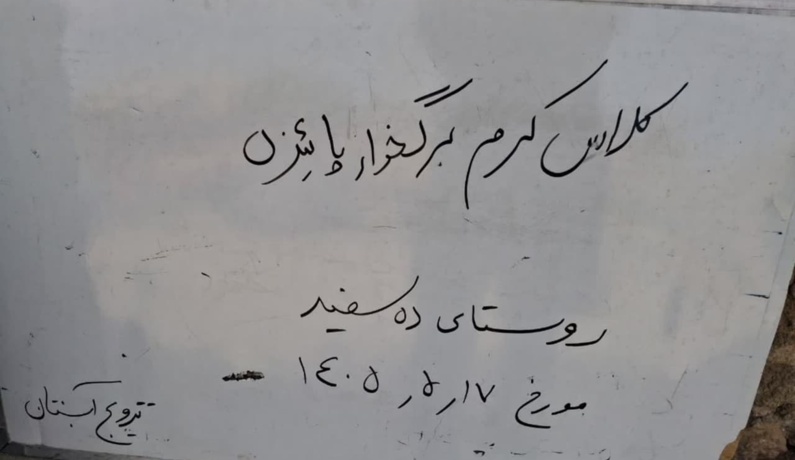 کلاس کرم برگخوار پائیزی
روستای ده سفید
مورخ ۱۷ر۵ر۱۴۰۵
ترویج آبستان